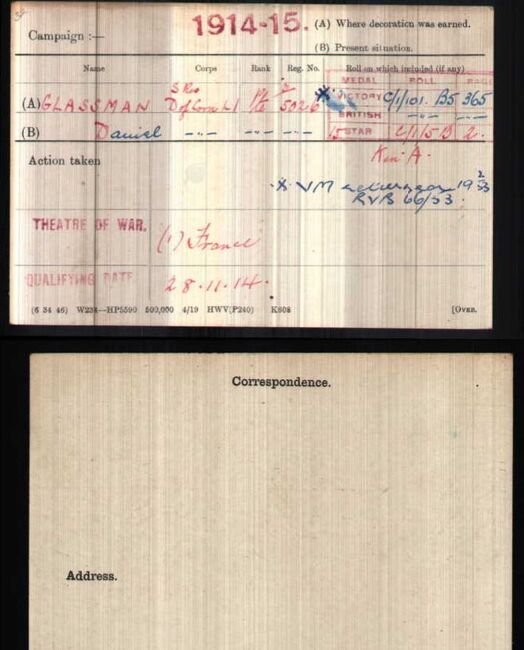 Campaign :— 1914-15. (A) Where decoration was earned.
(B) Present situation.
Name Corps Rank Reg. No. Roll on which included (if any)
MEDAL ROLL PAGE
S Res
(A) GLASSMAN D of Corn L I Pte 5026 * VICTORY C/1/101. B5 365
BRITISH —"— —"—
(B) Daniel —"— —"— —"— 15 STAR C/1/5 B 2.
Action taken K in A.
* VM 19
RVB 66/53.
THEATRE OF WAR. (1) France
QUALIFYING DATE 28.11.14.
(6 34 46) W234—HP5590 500,000 4/19 HWV(P240) K608 [OVER.
Correspondence.
Address.